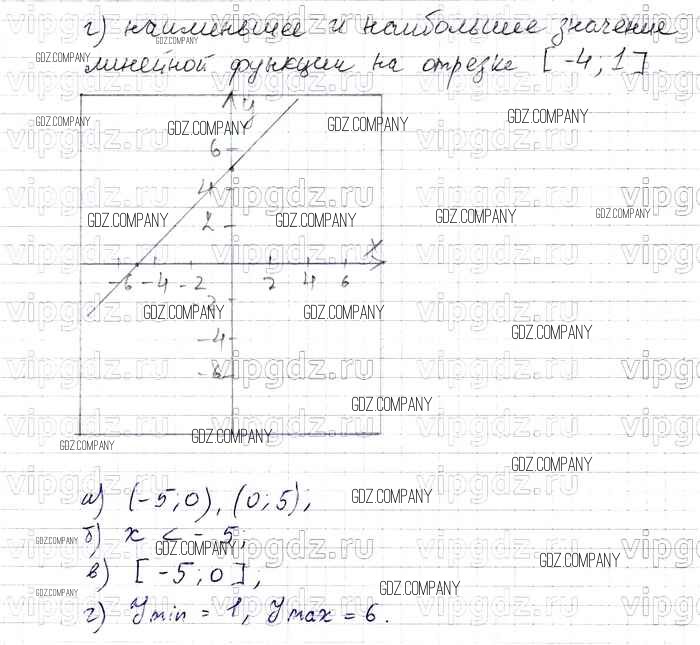 г) наименьшее и наибольшее значение
линейной функции на отрезке [-4, 1]
y
6
4
2
x
-6 -4 -2 2 4 6
-2
-4
-6
а) (-5; 0), (0; 5);
б) x < -5;
в) [-5; 0];
г) Ymin = 1, Ymax = 6.
GDZ.COMPANY
vipgdz.ru